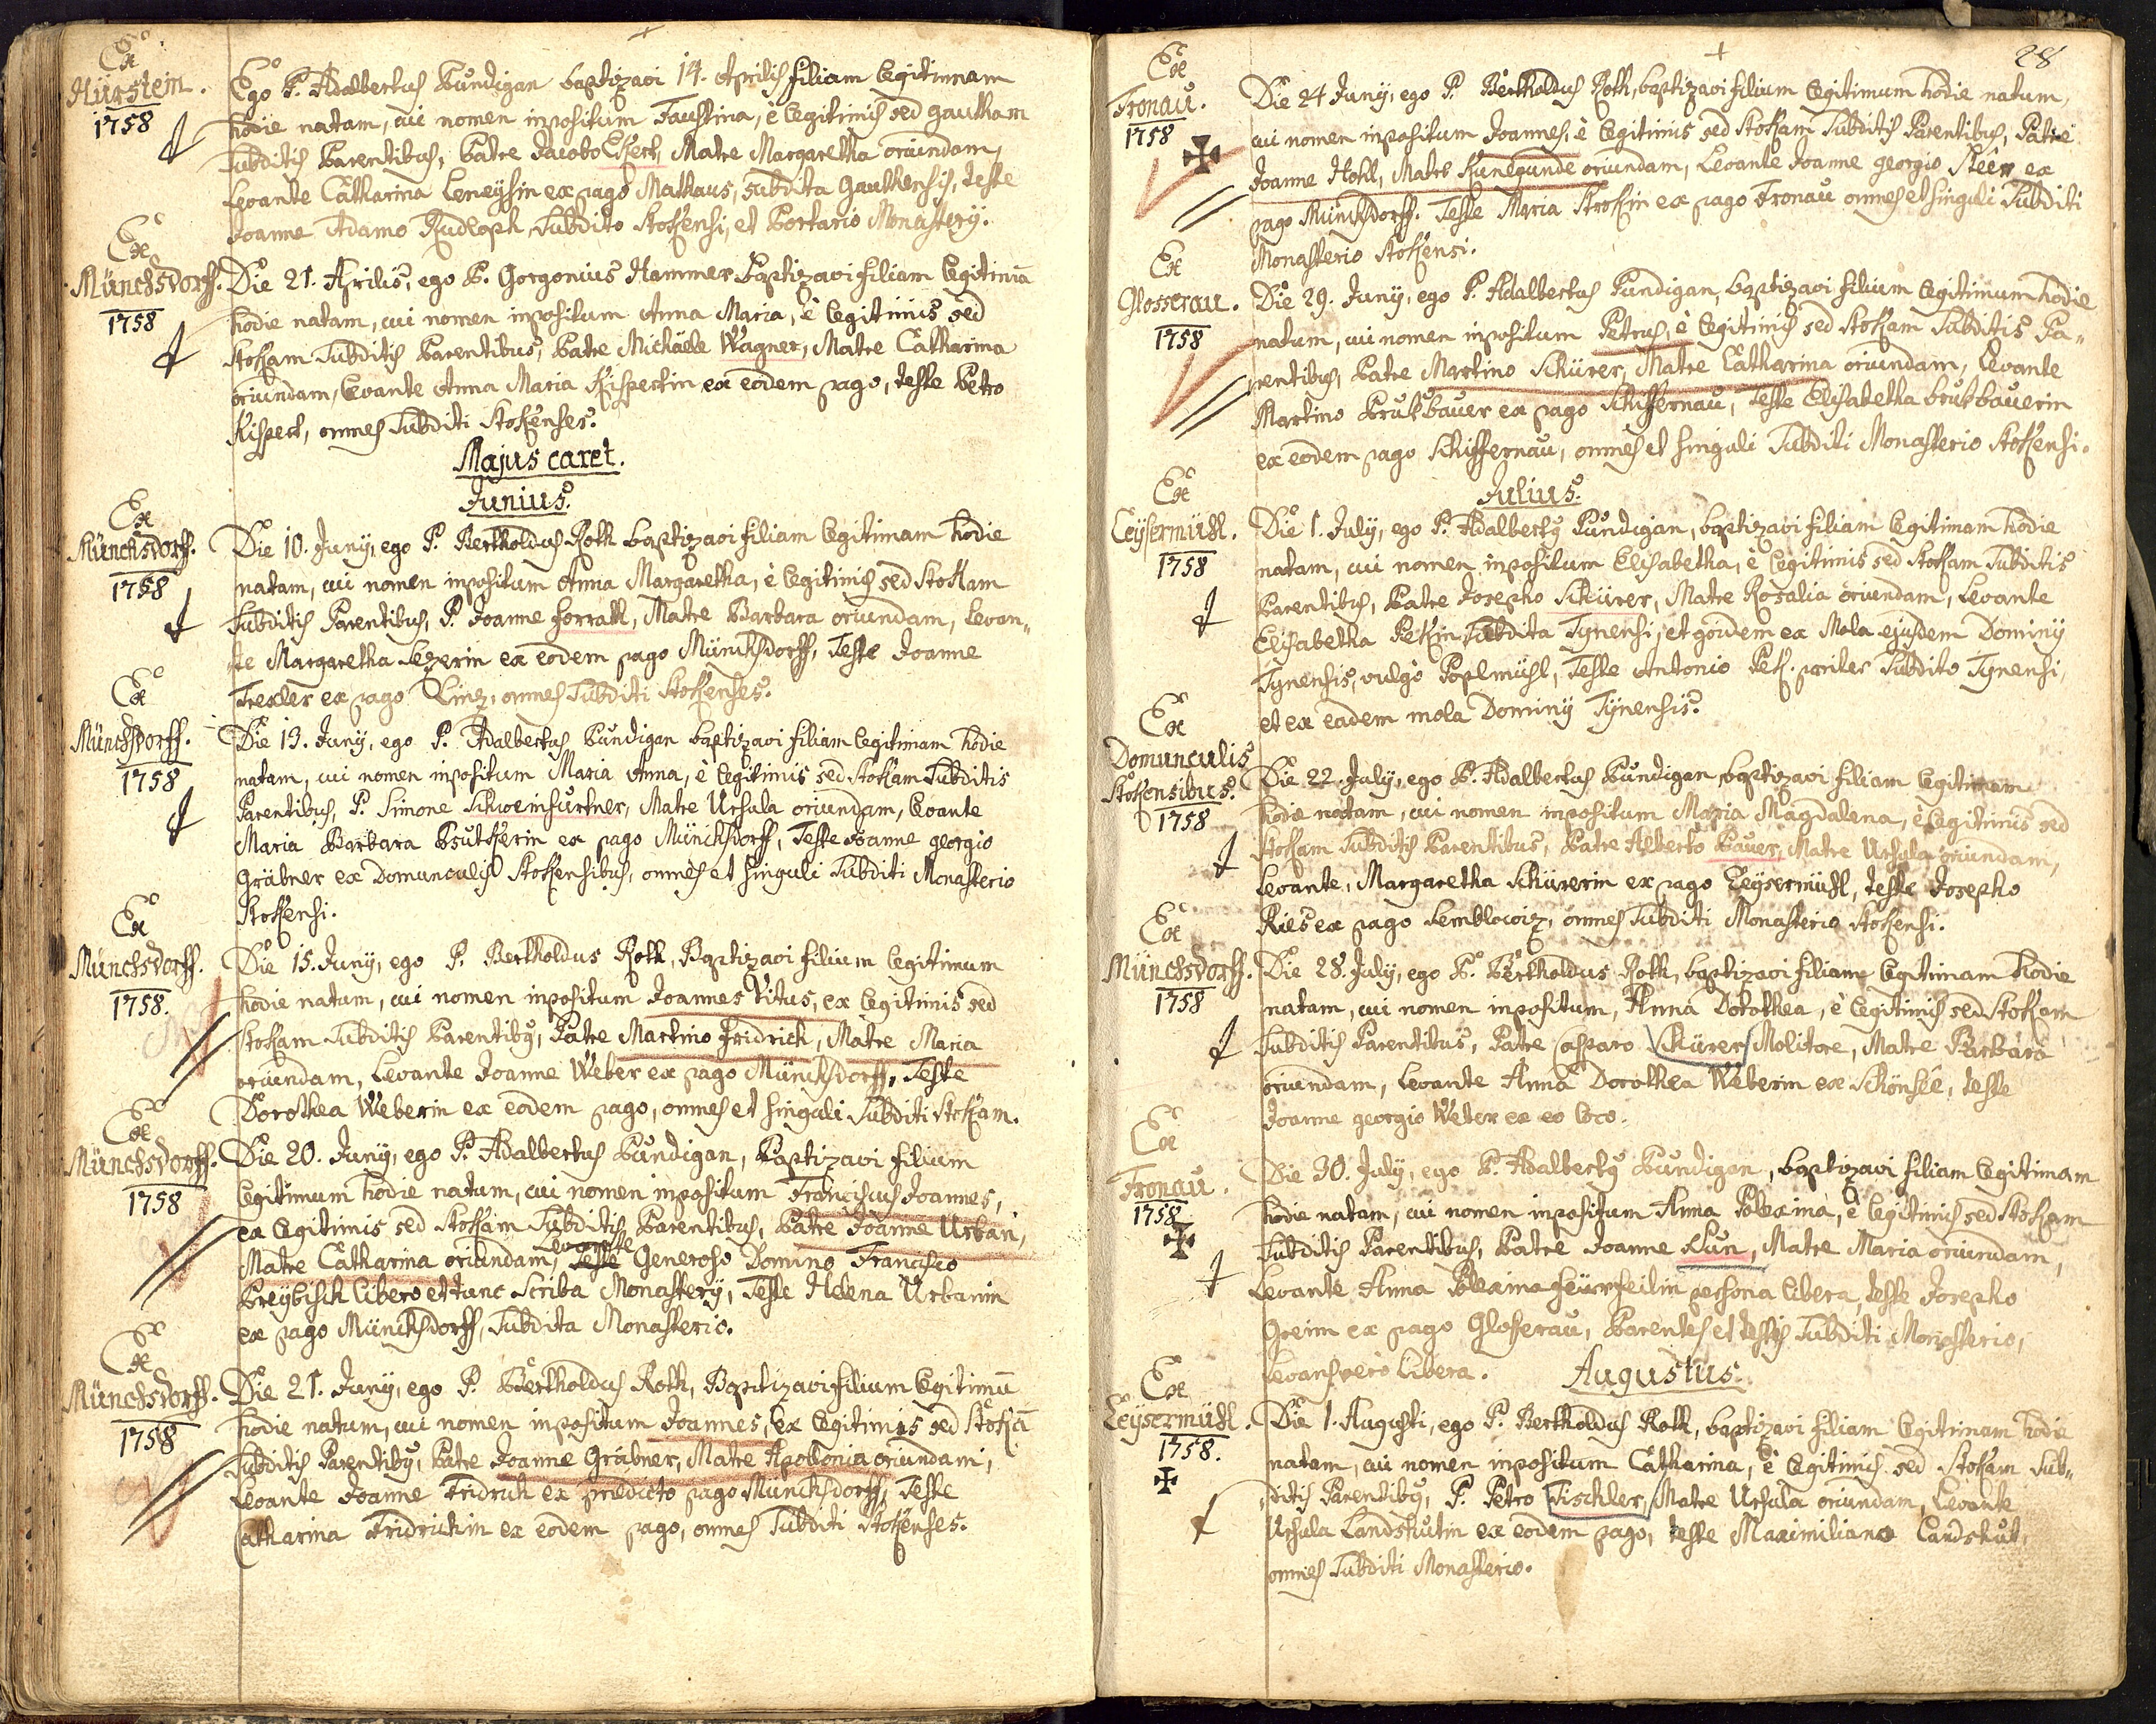 Ex
Hürstein.
1758
Ego P. Adalbertus Pundigan baptizavi 14. Aprilis filiam legitimam
hodie natam, cui nomen inpositum Faustina, è legitimis sed
subditis Parentibus, Patre Jacobo Matre Margaretha oriundam,
Levante Catharina ex pago subdita teste
Joanne Adamo Rudloph, Subdito Stokensi, et Portario Monastery.
Ex
Münchsdorff.
1758
Die 21. Aprilis, ego P. Gorgonius Hammer baptizavi filiam legitimā
hodie natam, cui nomen inpositum Anna Maria, è legitimis sed
Stokam Subditis Parentibus, Patre Michaële Wagner, Matre Catharina
oriundam, Levante Anna Maria Kispertin ex eodem pago, teste Petro
Kispert, omnes Subditi Stokenses.
Majus caret.
Junius.
Ex
Münchsdorff.
1758
Die 10. Juny, ego P. Bertholdus Roth baptizavi filiam legitimam hodie
natam, cui nomen inpositum Anna Margaretha, è legitimis sed Stokam
Subditis Parentibus, P. Joanne Matre Barbara oriundam, Levan„
te Margaretha ex eodem pago Münchsdorff, Teste Joanne
Trexler ex pago Linz, omnes Subditi Stokenses.
Ex
Münchsdorff.
1758
Die 13. Juny, ego P. Adalbertus Pundigan baptizavi filiam legitimam hodie
natam, cui nomen inpositum Maria Anna, è legitimis sed Stokam Subditis
Parentibus, P. Simone Schweinfurtner, Matre Ursula oriundam, Levante
Maria Barbara ex pago Münchsdorff, Teste Joanne georgio
Gräbner ex Domunculis Stokensibus, omnes et singuli Subditi Monasterio
Stokensi.
Ex
Münchsdorff.
1758.
Die 15. Juny, ego P. Bertholdus Roth, Baptizavi filium legitimum
hodie natum, cui nomen inpositum Joannes Vitus, ex legitimis sed
Stokam Subditis Parentibꝰ, Patre Martino Fridrich, Matre Maria
oriundam, Levante Joanne Weber ex pago Münchsdorff, Teste
Dorothea Weberin ex eodem pago, omnes et singuli Subditi Stokam.
Ex
Münchsdorff.
1758
Die 20. Juny, ego P. Adalbertus Pundigan, Baptizavi filium
legitimum hodie natum, cui nomen inpositum Franciscus Joannes,
ex legitimis sed Stokam Subditis Parentibus, Patre Joanne Urban,
Levante
Matre Catharina oriundam, Teste Generoso Domino Francisco
Preybisch libero et tunc Scriba Monastery, Teste Helena Urbanin
ex pago Münchsdorff, Subdita Monasterio.
Ex
Münchsdorff.
1758
Die 21. Juny, ego P. Bertholdus Roth, Baptizavi filium legitimū
hodie natum, cui nomen inpositum Joannes, ex legitimis sed Stokā
Subditis Parentibꝰ, Patre Joanne Gräbner, Matre Apollonia oriundam,
Levante Joanne Fridrich ex predicto pago Münchsdorff, Teste
Catharina Fridrichin ex eodem pago, omnes Subditi Stokenses.
28
Ex
Fronau.
1758
Die 24 Juny, ego P. Bertholdus Roth, baptizavi filium legitimum hodie natum,
cui nomen inpositum Joannes, è legitimis sed Stokam Subditis Parentibus, Patre
Joanne Hohl, Matre Kunegunde oriundam, Levante Joanne georgio ex
pago Münchsdorff. Teste Maria ex pago Fronau omnes et singuli Subditi
Monasterio Stokensi.
Ex
Glosserau.
1758
Die 29. Juny, ego P. Adalbertus Pundigan, baptizavi filium legitimum hodie
natum, cui nomen inpositum Petrus, è legitimis sed Stokam Subditis Pa„
rentibus, Patre Martino Schürer, Matre Catharina oriundam, Levante
Martino Brukbauer ex pago Schiffernau, Teste Elisabetha brukbauerin
ex eodem pago Schiffernau, omnes et singuli Subditi Monasterio Stokensi.
Julius.
Ex
Leysermühl.
1758
Die 1. July, ego P. Adalbertꝰ Pundigan, baptizavi filiam legitimam hodie
natam, cui nomen inpositum Elisabetha, è legitimis sed Stokam Subditis
Parentibus, Patre Josepho Schürer, Matre Rosalia oriundam, Levante
Elisabetha Pekin Subdita Tynensi, et quidem ex Mola ejusdem Dominy
Tynensis, vulgò Poplmühl, Teste Antonio Pek. pariter Subdito Tynensi,
et ex eadem mola Dominy Tynensis.
Ex
Domunculis
Stokensibus.
1758
Die 22. July, ego P. Adalbertus Pundigan, baptizavi filiam legitimam
hodie natam, cui nomen inpositum Maria Magdalena, è legitimis sed
Stokam Subditis Parentibus, Patre Alberto Bauer, Matre Ursula oriundam,
Levante, Margaretha Schürerin ex pago Leysermühl, teste Josepho
Ries ex pago Semblowiz, omnes Subditi Monasterio Stokensi.
Ex
Münchsdorff.
1758
Die 28. July, ego P. Bertholdus Roth, baptizavi filiam legitimam hodie
natam, cui nomen inpositum, Anna Dorothea, è legitimis sed Stokam
Subditis Parentibus, Patre Casparo Schürer Molitore, Matre Barbara
oriundam, Levante Anna Dorothea Weberin ex Schönsee, teste
Joanne georgio Weber ex eo loco.
Ex
Fronau.
1758
Die 30. July, ego P. Adalbertꝰ Pundigan, baptizavi filiam legitimam
hodie natam, cui nomen inpositum Anna Polexina, è legitimis sed Stokam
Subditis Parentibus, Patre Joanne Kun, Matre Maria oriundam,
Levante Anna Polexina persona libera, teste Josepho
Greim ex pago Glosserau, Parentes et testis Subditi Monasterio,
Levans verò libera.
Augustus.
Ex
Leysermühl.
1758.
Die 1. Augusti, ego P. Bertholdus Roth, baptizavi filiam legitimam hodie
natam, cui nomen inpositum Catharina, è legitimis sed Stokam Sub„
ditis Parentibꝰ, P. Petro Tischler, Matre Ursula oriundam, Levante
Ursula Landshutin ex eodem pago, teste Maximiliano Landshut,
omnes Subditi Monasterio.